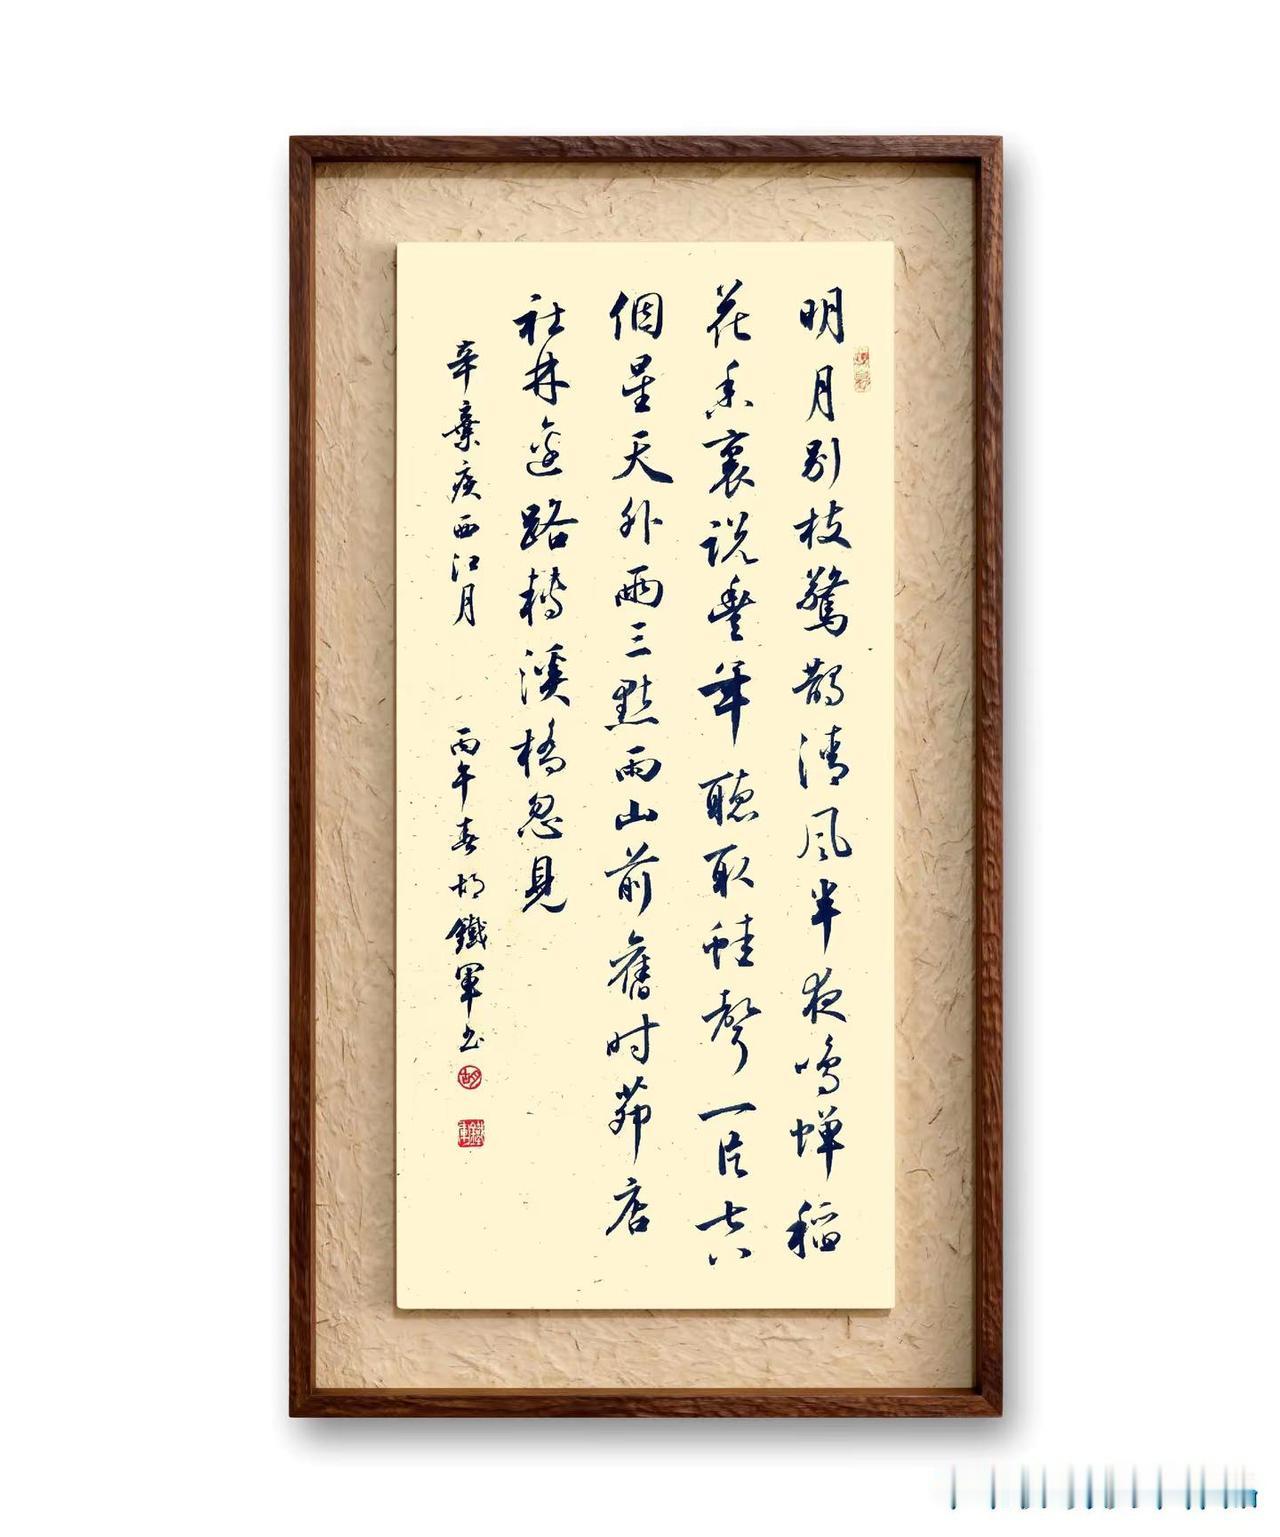 明月别枝驚鵲清風半夜鳴蟬稻
花香裏説豐年聽取蛙聲一片七八
個星天外兩三點雨山前舊时茅店
社林邊路轉溪橋忽見
辛棄疾西江月 丙午春胡鐵軍书
胡
鐵軍